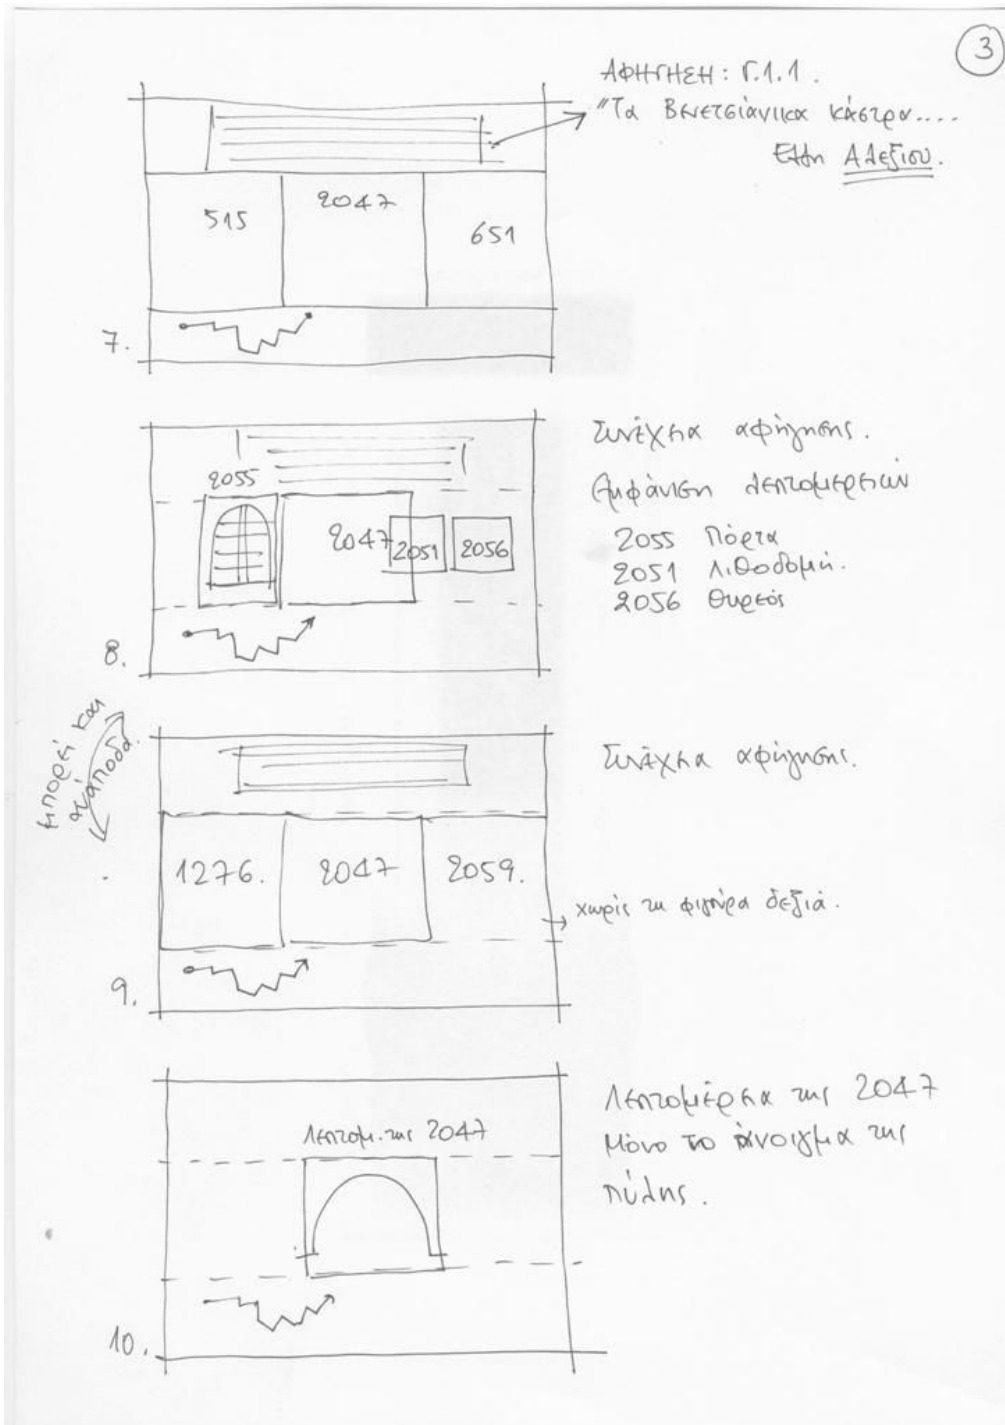 3
ΑΦΗΓΗΣΗ: Γ.1.1.
"Τα Βενετσιάνικα κάστρα....
Έλλη Αλεξίου.
515
2047
651
7.
Συνέχεια αφήγησης.
Εμφάνιση λεπτομερειών
2055 Πόρτα
2051 Λιθοδομή.
2056 Θυρεός
2055
2047
2051
2056
8.
μπορεί και
ανάποδα.
Συνέχεια αφήγησης.
1276.
2047
2059.
χωρίς τη φιγούρα δεξιά.
9.
Λεπτομέρεια της 2047
Μόνο το άνοιγμα της
πύλης.
Λεπτομ. της 2047
10.